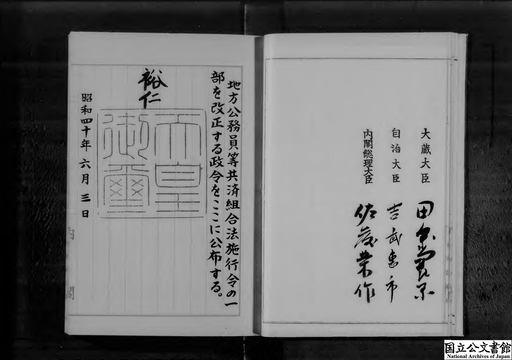 地方公務員等共済組合法施行令の一
部を改正する政令をここに公布する。
裕仁
天皇
御璽
昭和四十年六月三日
大蔵大臣 田中角栄
自治大臣 吉武恵市
内閣総理大臣 佐藤榮作
国立公文書館
National Archives of Japan